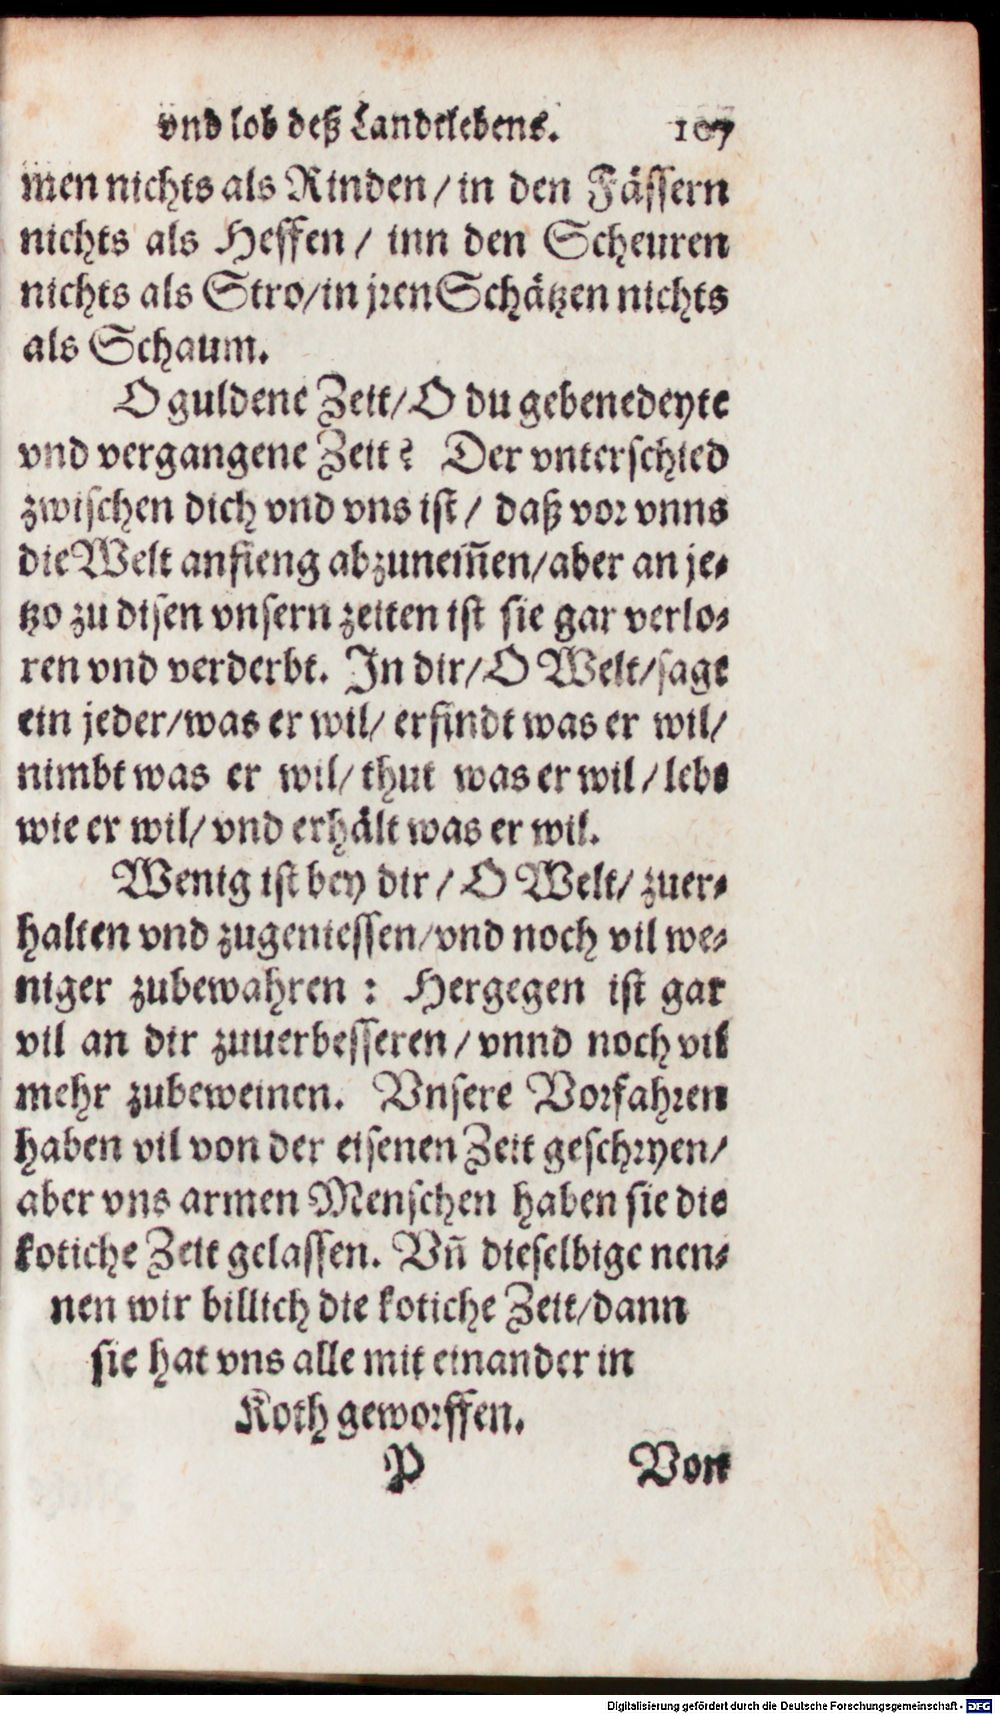 vnd lob deß Landtlebens. 107
men nichts als Rinden / in den Fässern
nichts als Heffen / inn den Scheuren
nichts als Stro/in jren Schätzen nichts
als Schaum.
O guldene Zeit/ O du gebenedeyte
vnd vergangene Zeit? Der vnterschied
zwischen dich vnd vns ist / daß vor vnns
die Welt anfieng abzunem̃en/aber an je-
tzo zu disen vnsern zeiten ist sie gar verlo-
ren vnd verderbt. In dir/ O Welt/sagt
ein jeder/was er wil/ erfindt was er wil/
nimbt was er wil/ thut was er wil / lebt
wie er wil/ vnd erhält was er wil.
Wenig ist bey dir / O Welt/ zuer-
halten vnd zugeniessen/vnd noch vil we-
niger zubewahren : Hergegen ist gar
vil an dir zuuerbesseren / vnnd noch vil
mehr zubeweinen. Vnsere Vorfahren
haben vil von der eisenen Zeit geschryen/
aber vns armen Menschen haben sie die
kotiche Zeit gelassen. Vñ dieselbige nen-
nen wir billich die kotiche Zeit/dann
sie hat vns alle mit einander in
Koth geworffen.
P Von
Digitalisierung gefördert durch die Deutsche Forschungsgemeinschaft - DFG